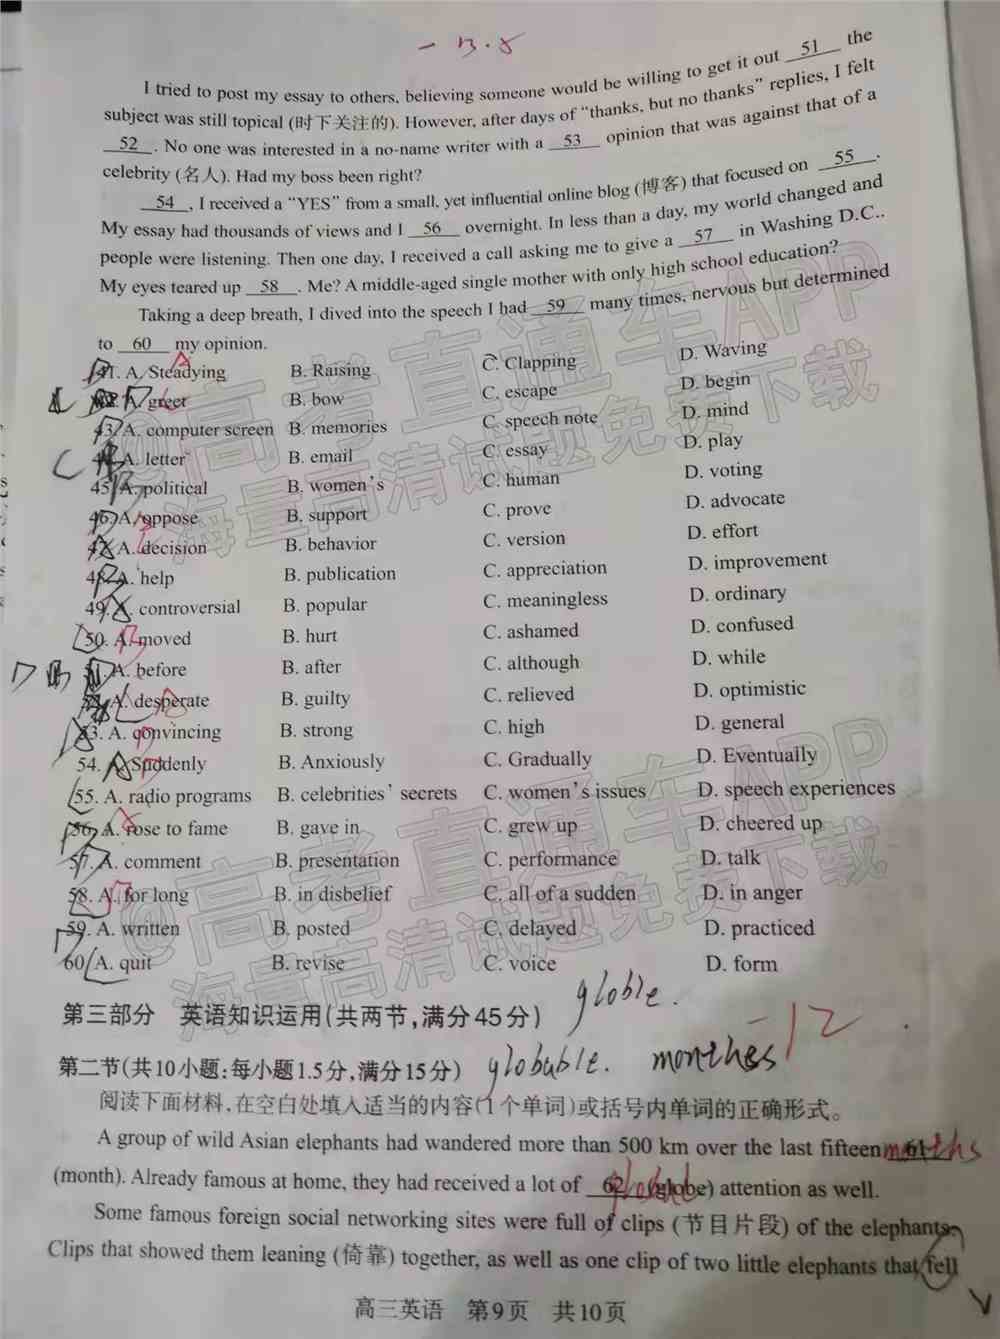 - 13.5
I tried to post my essay to others, believing someone would be willing to get it out 51 the
subject was still topical (时下关注的). However, after days of “thanks, but no thanks” replies, I felt
52 . No one was interested in a no-name writer with a 53 opinion that was against that of a
celebrity (名人). Had my boss been right?
54 , I received a “YES” from a small, yet influential online blog (博客) that focused on 55 .
My essay had thousands of views and I 56 overnight. In less than a day, my world changed and
people were listening. Then one day, I received a call asking me to give a 57 in Washing D.C..
My eyes teared up 58 . Me? A middle-aged single mother with only high school education?
Taking a deep breath, I dived into the speech I had 59 many times, nervous but determined
to 60 my opinion.
41. A. Steadying B. Raising C. Clapping D. Waving
A. greet B. bow C. escape D. begin
43. A. computer screen B. memories C. speech note D. mind
A. letter B. email C. essay D. play
45. A. political B. women's C. human D. voting
46. A. oppose B. support C. prove D. advocate
47. A. decision B. behavior C. version D. effort
48. A. help B. publication C. appreciation D. improvement
49. A. controversial B. popular C. meaningless D. ordinary
50. A. moved B. hurt C. ashamed D. confused
51. A. before B. after C. although D. while
52. A. desperate B. guilty C. relieved D. optimistic
53. A. convincing B. strong C. high D. general
54. A. Suddenly B. Anxiously C. Gradually D. Eventually
55. A. radio programs B. celebrities' secrets C. women's issues D. speech experiences
56. A. rose to fame B. gave in C. grew up D. cheered up
57. A. comment B. presentation C. performance D. talk
58. A. for long B. in disbelief C. all of a sudden D. in anger
59. A. written B. posted C. delayed D. practiced
60. A. quit B. revise C. voice D. form
globle.
第三部分 英语知识运用(共两节,满分45分)
-12
第二节(共10小题;每小题1.5分,满分15分) globable. monthes
阅读下面材料,在空白处填入适当的内容(1个单词)或括号内单词的正确形式。
A group of wild Asian elephants had wandered more than 500 km over the last fifteen 61 months
(month). Already famous at home, they had received a lot of 62 (globe) attention as well.
Some famous foreign social networking sites were full of clips (节目片段) of the elephants.
Clips that showed them leaning (倚靠) together, as well as one clip of two little elephants that fell
高三英语 第9页 共10页
@高考直通车APP
海量高清试题免费下载
@高考直通车APP
海量高清试题免费下载